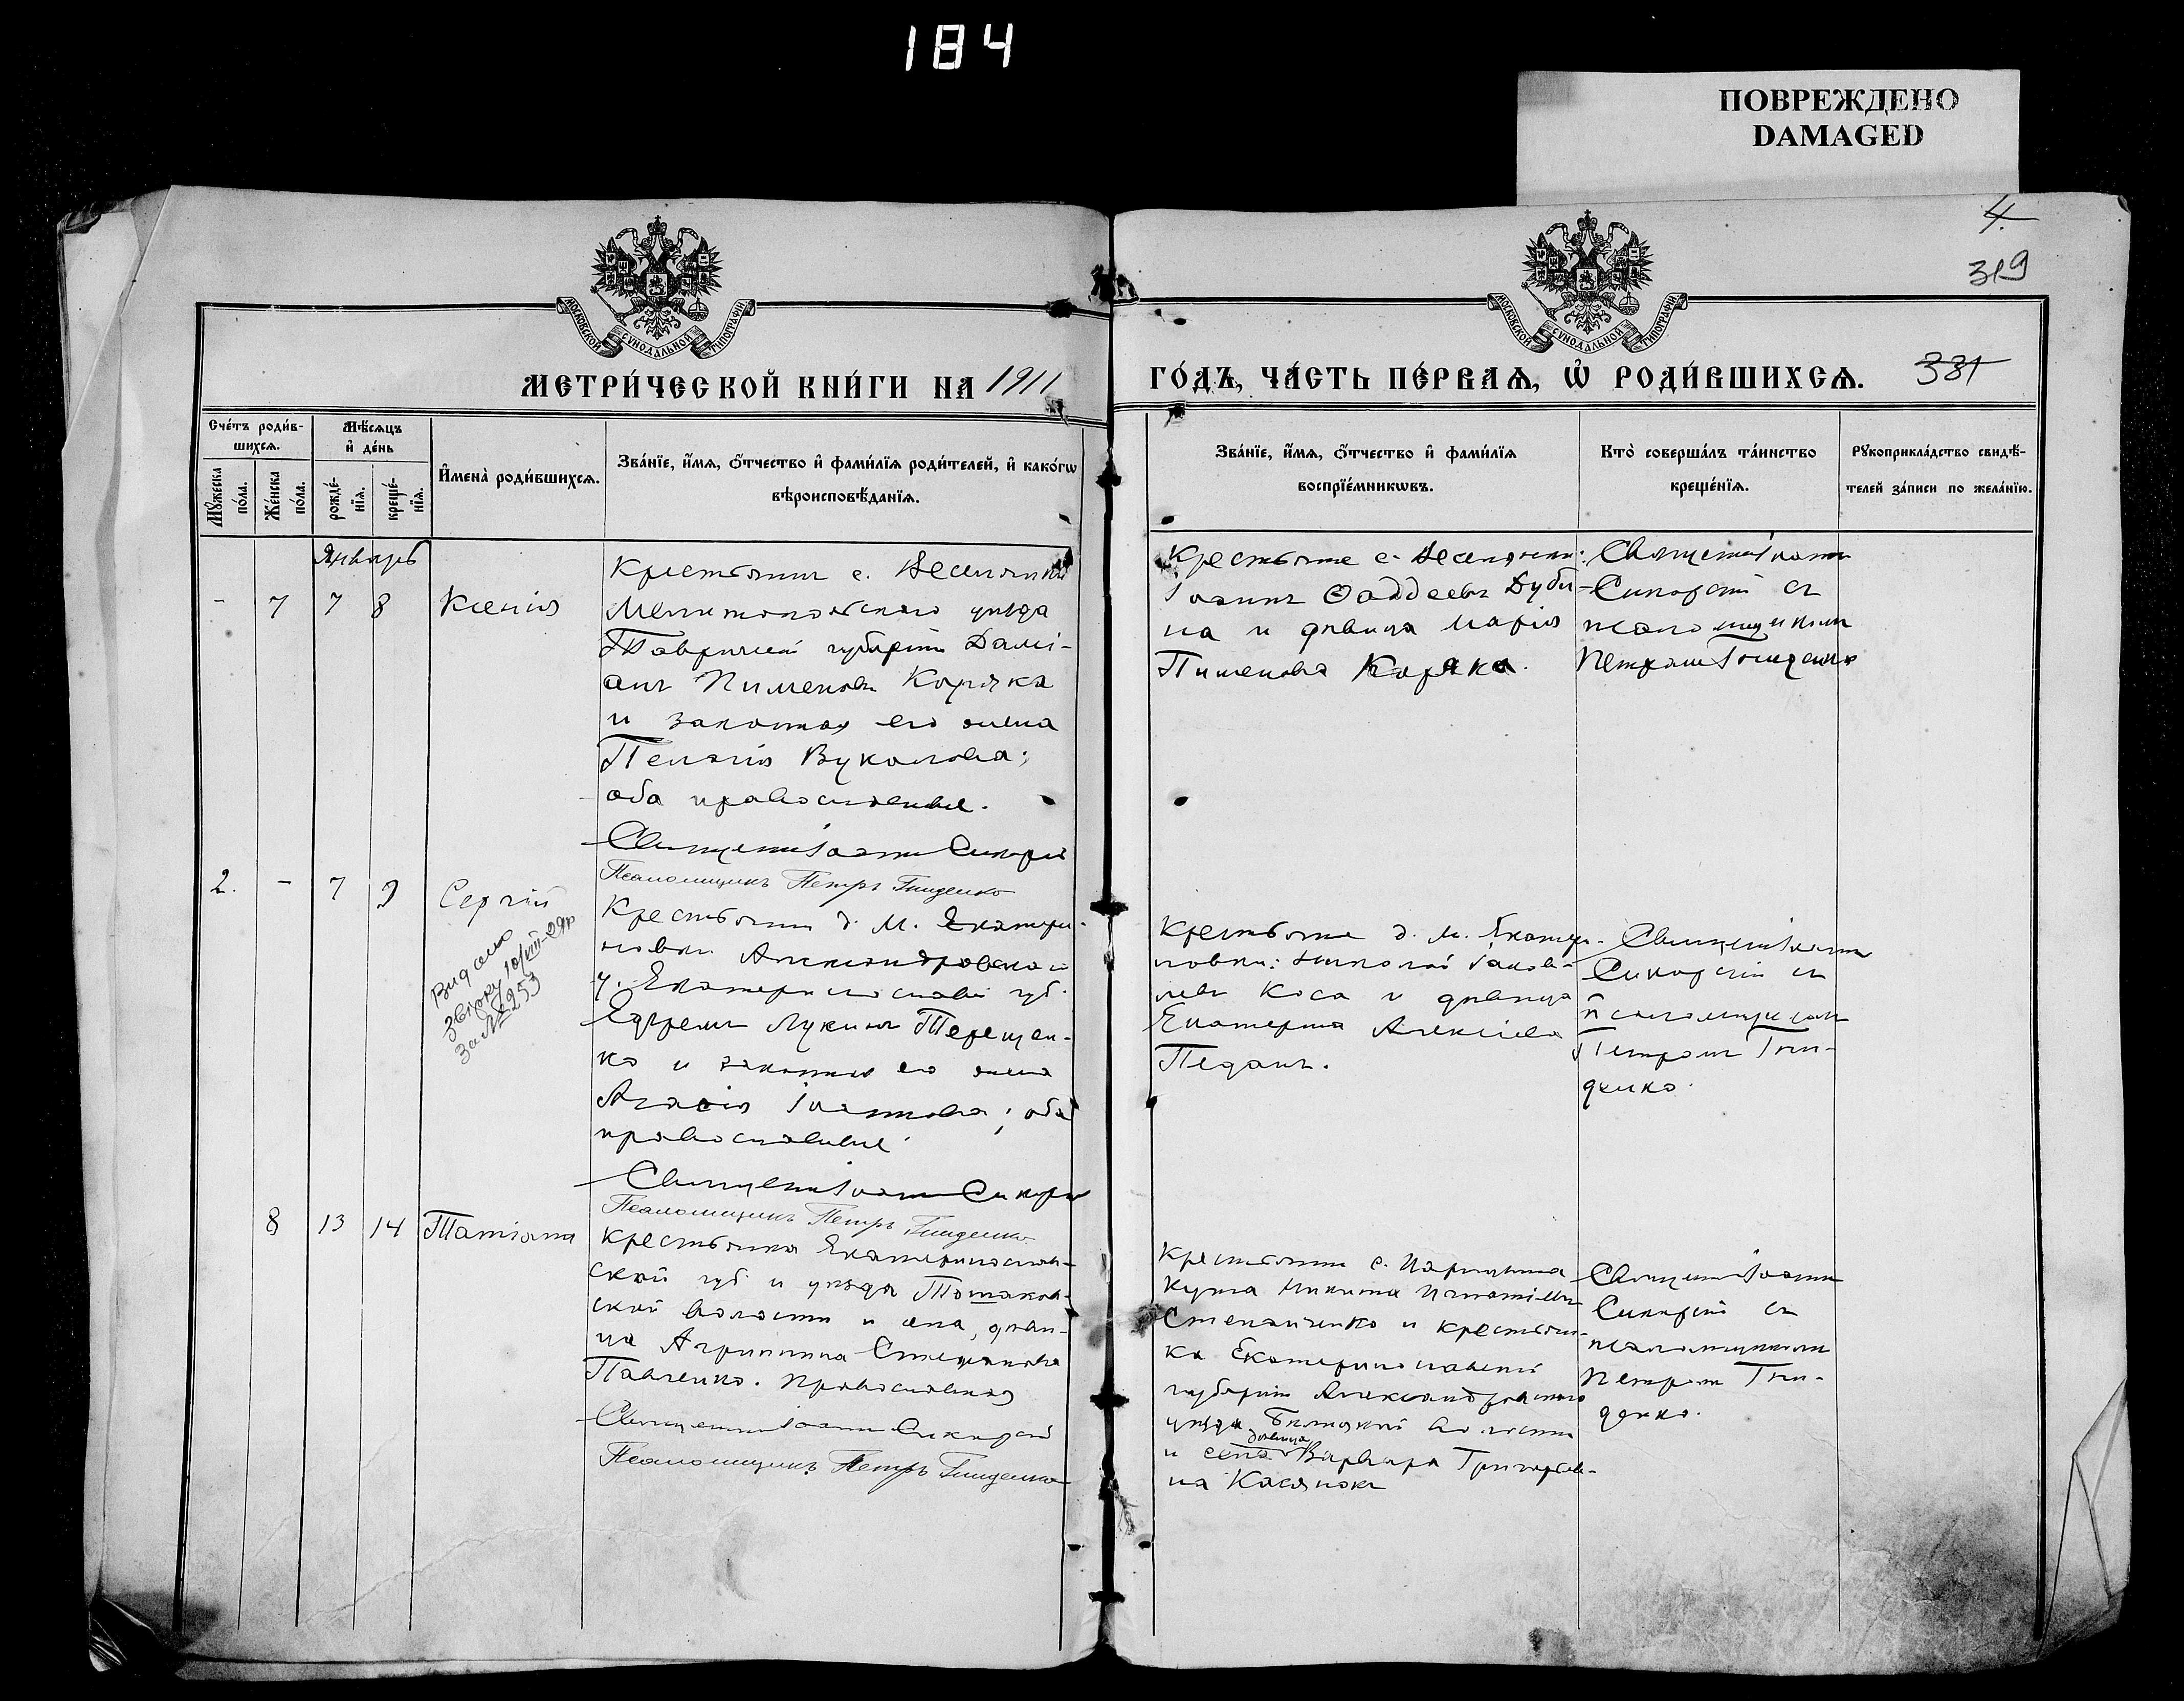 184
ПОВРЕЖДЕНО
DAMAGED
4.
319
МОСКОВСКОЙ СУНОДАЛЬНОЙ ТИПОГРАФІИ
МОСКОВСКОЙ СУНОДАЛЬНОЙ ТИПОГРАФІИ
МЕТРИ́ЧЕСКОЙ КНИ́ГИ НА 1911
ГО́ДЪ, ЧА́СТЬ ПЕ́РВАѦ, Ѡ҆ РОДИ́ВШИХСѦ.
381
Сче́тъ роди́в-
шихсѧ.
Мѣ́сѧцъ
и҆ де́нь
Мꙋ́жеска
по́ла.
Же́нска
по́ла.
рожде́-
нїѧ.
креще́-
нїѧ.
И҆мена̀ роди́вшихсѧ.
Зва́нїе, и҆́мѧ, ѻ҆́тчество и҆ фами́лїѧ роди́телей, и҆ како́гѡ
вѣроисповѣ́данїѧ.
Зва́нїе, и҆́мѧ, ѻ҆́тчество и҆ фами́лїѧ
воспрїе́мникѡвъ.
Кто̀ соверша́лъ та́инство
креще́нїѧ.
Рꙋкоприкла́дство свидѣ́-
телей за́писи по жела́нїю.
Январь
- 7 7 8 Ксенія
Крестьянинъ с.
Мелитопольскаго уѣзда
Таврической губерніи Дамі-
анъ Пименовъ Коряка
и законная его жена
Пелагія Вуколова;
оба православные.
Священникъ Іоаннъ Сикорскій
Псаломщикъ Петръ Гниденко
Крестьяне с.
Іоаннъ Ѳаддеевъ Дуби-
на и дѣвица Марія
Пименова Коряка.
Священникъ Іоаннъ
Сикорскій съ
псаломщикомъ
Петромъ Гниденко
2. - 7 9 Сергій
Видано
звірку 10/VIII-29р
за № 253
Крестьянинъ д. М. Екатери-
новки Александровскаго
у. Екатеринославской губ.
Ефремъ Лукинъ Терещен-
ко и законная его жена
Агаѳія Іоаннова; оба
православные
Священникъ Іоаннъ Сикорскій
Псаломщикъ Петръ Гниденко
Крестьяне д. М. Екатери-
новки: Николай Іаков-
левъ Коса и дѣвица
Екатерина Алексіева
Педанъ.
Священникъ Іоаннъ
Сикорскій съ
псаломщикомъ
Петромъ Гни-
денко.
8 13 14 Татіана
Крестьянка Екатеринослав-
ской губ. и уѣзда Томаков-
ской волости и села, дѣви-
ца Агриппина Стефанова
Павленко. Православная
Священникъ Іоаннъ Сикорскій
Псаломщикъ Петръ Гниденко
Крестьянинъ с. Царицына
Кута Никита Игнатіевъ
Степаненко и крестьян-
ка Екатеринославской
губерніи Александровскаго
уѣзда волости
и села дѣвица Варвара Григорьев-
на Касянокъ
Священникъ Іоаннъ
Сикорскій съ
псаломщикомъ
Петромъ Гни-
денко.